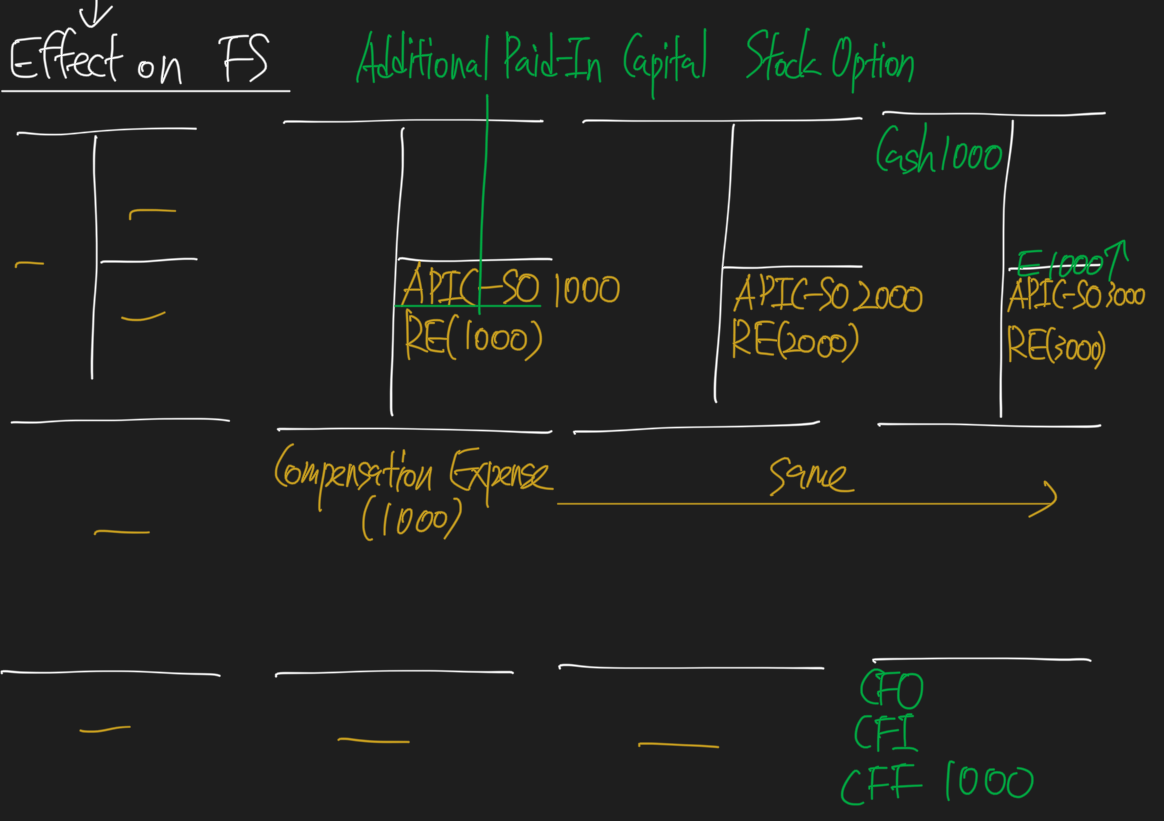 Effect on FS
Additional Paid-In Capital Stock Option
Cash 1000
E 1000↑
APIC-SO 1000
RE(1000)
APIC-SO 2000
RE(2000)
APIC-SO 3000
RE(3000)
Compensation Expense
(1000)
Same
CFO
CFI
CFF 1000